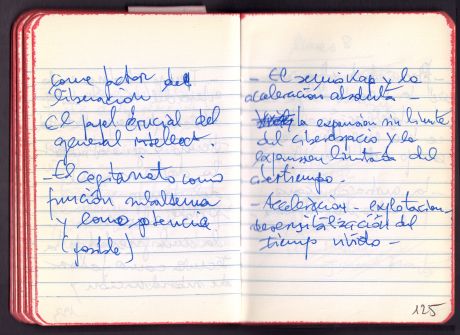 como factor de
liberación
El papel crucial del
general intelect.
- El cognitariato como
función subalterna
y como potencia
(posible)
- El semiokap y la
aceleración absoluta -
la expansión sin límite
del ciberespacio y la
expansión limitada del
cibertiempo.
- Acceleración - explotación
desensibilización del
tiempo vivido -
125